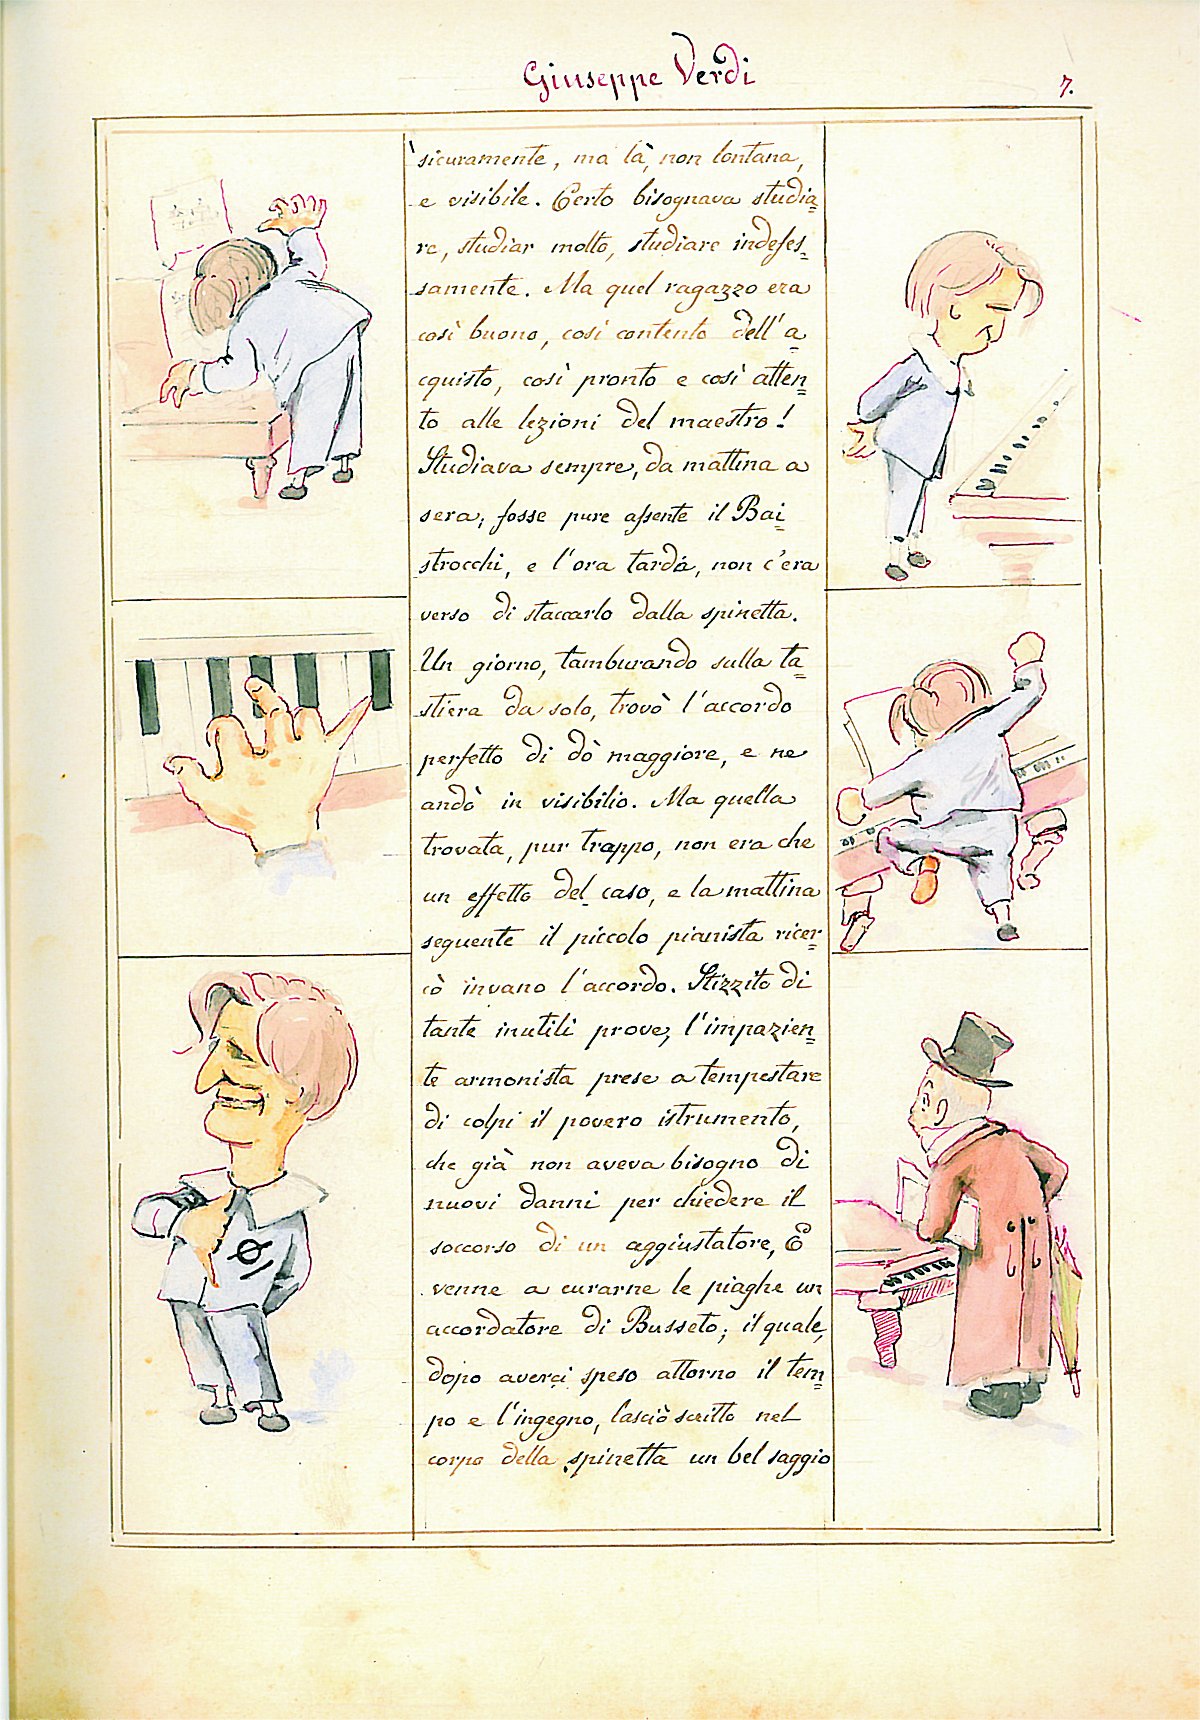 Giuseppe Verdi
7.
sicuramente, ma là, non lontana,
e visibile. Certo bisognava studia=
re, studiar molto, studiare indefes=
samente. Ma quel ragazzo era
così buono, così contento dell'a=
cquisto, così pronto e così atten=
to alle lezioni del maestro!
Studiava sempre, da mattina a
sera; fosse pure assente il Bai=
strocchi, e l'ora tarda, non c'era
verso di staccarlo dalla spinetta.
Un giorno, tamburando sulla ta=
stiera da solo, trovò l'accordo
perfetto di dò maggiore, e ne
andò in visibilio. Ma quella
trovata, pur trappo, non era che
un effetto del caso, e la mattina
seguente il piccolo pianista ricer=
cò invano l'accordo. Stizzito di
tante inutili prove, l'impazien=
te armonista prese a tempestare
di colpi il povero istrumento,
che già non aveva bisogno di
nuovi danni per chiedere il
soccorso di un aggiustatore, E
venne a curarne le piaghe un
accordatore di Busseto; il quale,
dopo averci speso attorno il tem=
po e l'ingegno, lasciò scritto nel
corpo della spinetta un bel saggio